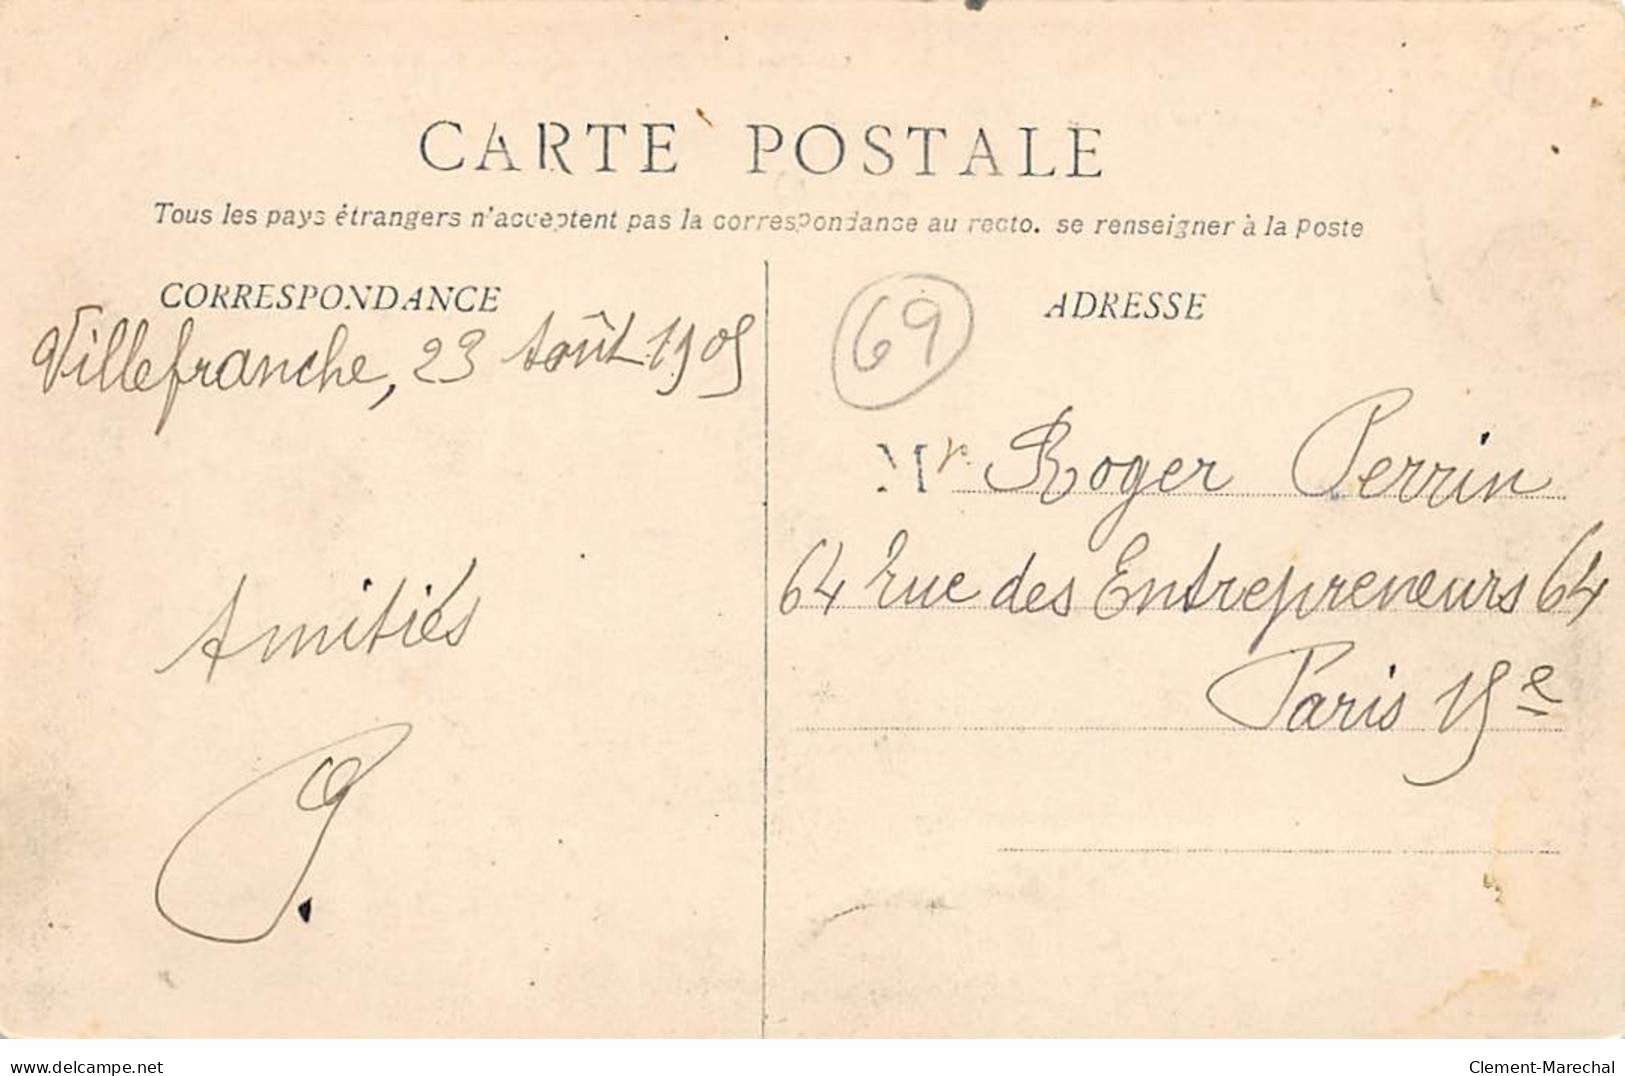 CARTE POSTALE
Tous les pays étrangers n'acceptent pas la correspondance au recto. se renseigner à la Poste
CORRESPONDANCE
Villefranche, 23 Août 1905
Amitiés
P.
69
ADRESSE
Mr Roger Perrin
64 Rue des Entrepreneurs 64
Paris 15e
delcampe.net
Clement-Marechal